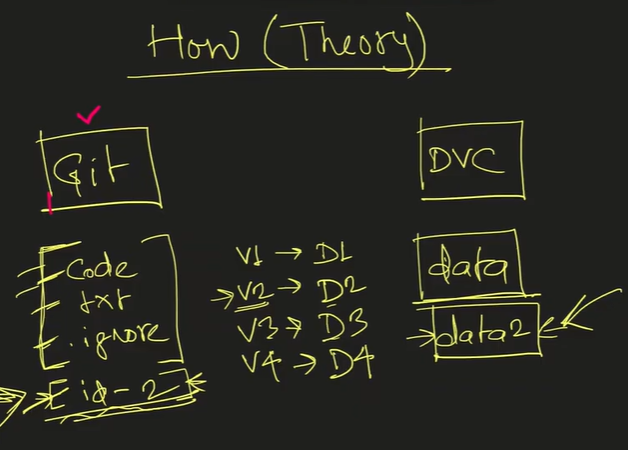 How (Theory)
Git
DVC
Code
txt
.ignore
id-2
V1 → D1
V2 → D2
V3 → D3
V4 → D4
data
data2